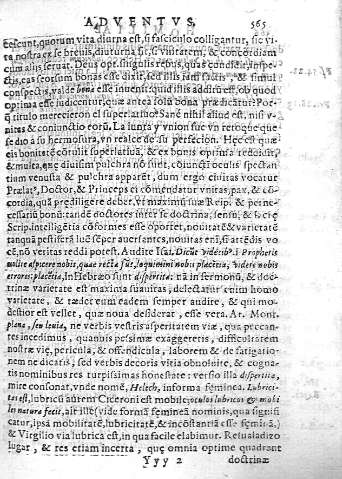 ADVENTUS, 565
tescunt, quorum vita diurna est, si fasciculo colliguntur, sic vi-
ta nostra ex se brevis, diuturna fit, si unitatem, & concordiam
cum aliis servat. Deus opt. singulis rebus, quas condidit, inspe-
ctis, eas seorsum bonas esse dixit, sed illis iam factis, & simul
conspectis, valde bona esse invenit: quid illis additum est, ob quod
optima esse iudicentur, quæ antea solum bona prædicatur? Por-
q titulo merecieron el superlativo? Sane nihil aliud est, nisi v-
nitas & coniunctio eorũ. La junta y vnion fue vn retoque que
se dio a su hermosura, vn realce de su perfecion. Hęc est quæ
eis bonitatē cōtulit superlativā, & ex bonis optima reddidit,
& multa, quę divisim pulchra nō sunt, coiunctā oculis spectan-
tium venusta & pulchra apparēt, dum ergo civitas vocatur
Prælatꝰ, Doctor, & Princeps ei cōmendatur vnitas, pax, & cō-
cordia, quā prędiligere debet, vt maximū suæ Reip. & pene-
cessariū bonū: tandē doctores inter se doctrina, sensu, &
Scrip. intelligētia cōformes esse oportet, novitatē & varietatē
tanquā pestiferā luē semper aversantes, novitas enī, si artēdis vo
cē, nō veritas reddi potest. Audite Isai. Dicũt vidētibꝰ: Prophetis
nolite aspicere nobis, quæ recta sũt, loquimini nobis placētia, videte nobis
errores: placētia, In Hebræo sunt dispertita: nā in sermonũ, & do-
ctrinæ varietate est maxima suavitas, delectatur enim homo
varietate, & tædet eum eadem semper audire, & qui mo-
destior est vellet, quæ nova desiderat, esse vera. Ar. Mont.
plana, seu levia, ne verbis vestris asperitatem viæ, qua peccan-
tes incedimus, quambis pesimæ exaggeretis, difficultatem
nostræ vię, pericula, & offendicula, laborem & defatigatio-
nem ne dicatis, sed verbis decoris vitia obnolvite, & cogta-
tis nominibus res turpissimas honestate: versio illa dispertita,
mire consonat, vnde nomē, Helech, informa feminea. Lubrici-
tas est, lubricũ aŭrem Ciceroni est mobile (oculos lubricos & mobi-
les natura fecit, ait ille (vide formā femineā nominis, qua signifi
catur, ipsa mobilitatē, lubricitatē, & incōstantiā esse feminā.)
& Virgilio via lubrica est, in qua facile elabimur. Refualadizo
lugar, & res etiam incerta, quę omnia optime quadrant
Yyy 2 doctrinæ